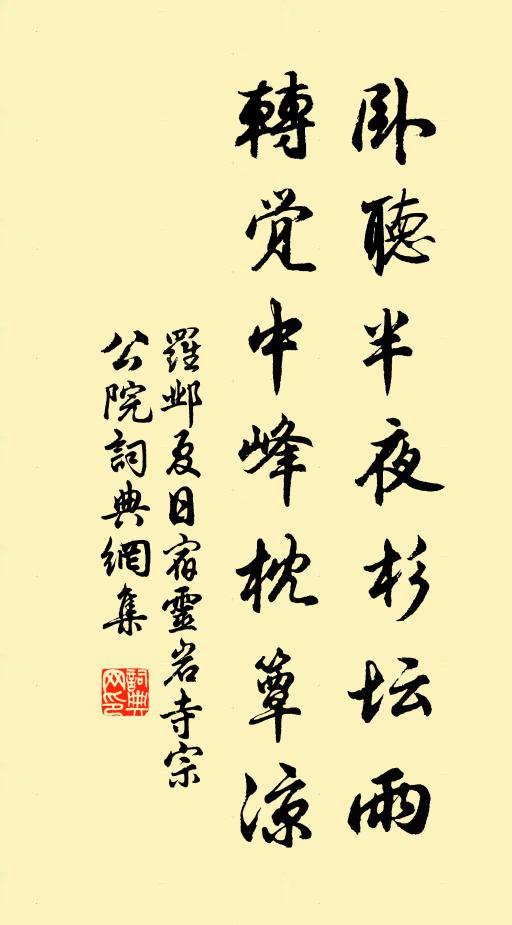 卧聽半夜杉坛雨
轉觉中峰枕簟凉
羅邺夏日宿靈岩寺宗
公院詞典網集
詞典
网印